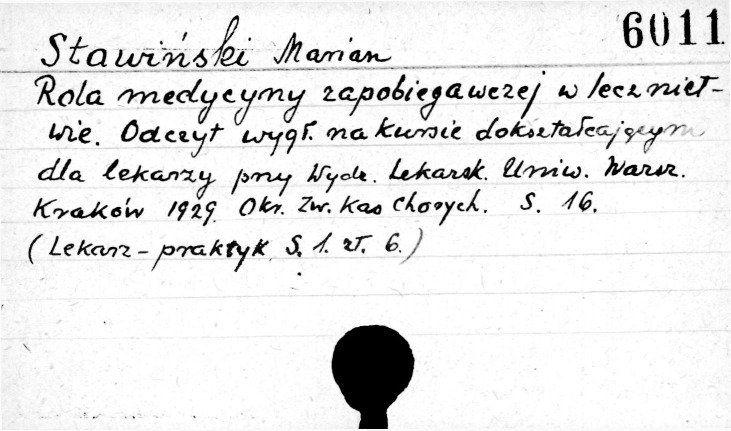 6011
Stawiński Marian
Rola medycyny zapobiegawczej w lecznict-
wie. Odczyt wygł. na kursie dokształcającym
dla lekarzy przy Wydz. Lekarsk. Uniw. Warsz.
Kraków 1929. Okr. Zw. Kas Chorych. S. 16.
(Lekarz-praktyk S. 1. zt. 6.)